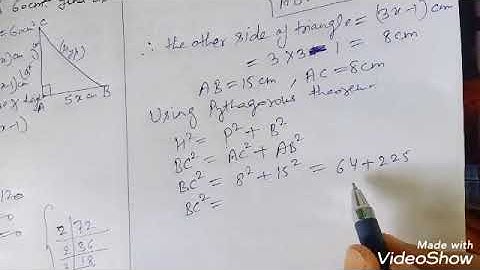 60cm²
C
A
5x cm
B
x-1)
2 | 72
2 | 36
2 | 18
∴ the other side of triangle = (3x-1) cm
= 3×3 - 1 = 8cm
AB = 15cm, AC = 8cm
Using Pythagorous theorem
H² = P² + B²
BC² = AC² + AB²
BC² = 8² + 15² = 64 + 225
BC² =
Made with
VideoShow